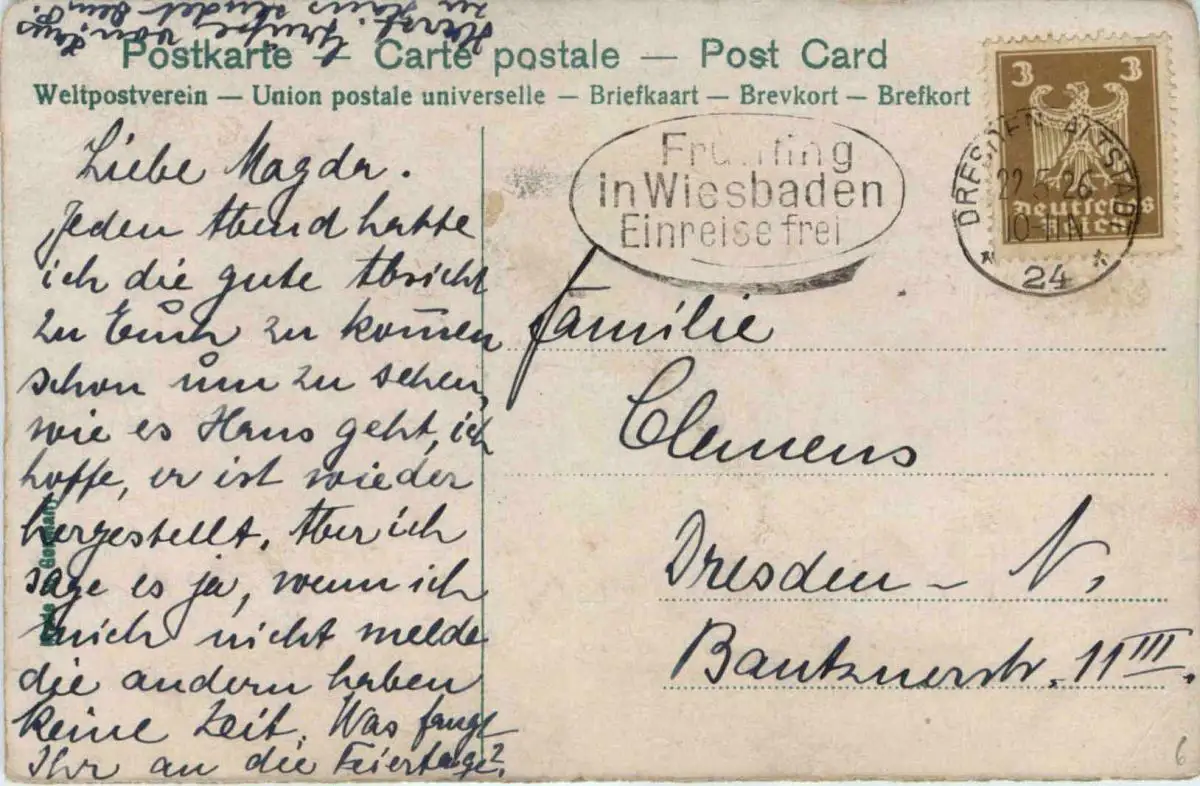 Postkarte — Carte postale — Post Card
Weltpostverein — Union postale universelle — Briefkaart — Brevkort — Brefkort
Liebe Magda.
Jeden Abend hatte
ich die gute Absicht
zu Euch zu kom̄en
schon um zu sehen,
wie es Hans geht, ich
hoffe, er ist wieder
hergestellt. Aber ich
sage es ja, wenn ich
mich nicht melde
die andern haben
keine Zeit. Was fangt
Ihr an die Feiertage?
Herzl. Grüße von
Haus sendet
Frühling
in Wiesbaden
Einreise frei
3 3
Deutsches
Reich
DRESDEN ALTSTADT
22.5.26
10-11 N
* 24 *
Familie
Clemens
Dresden – N.
Bautznerstr. 11 III.
Germany
6